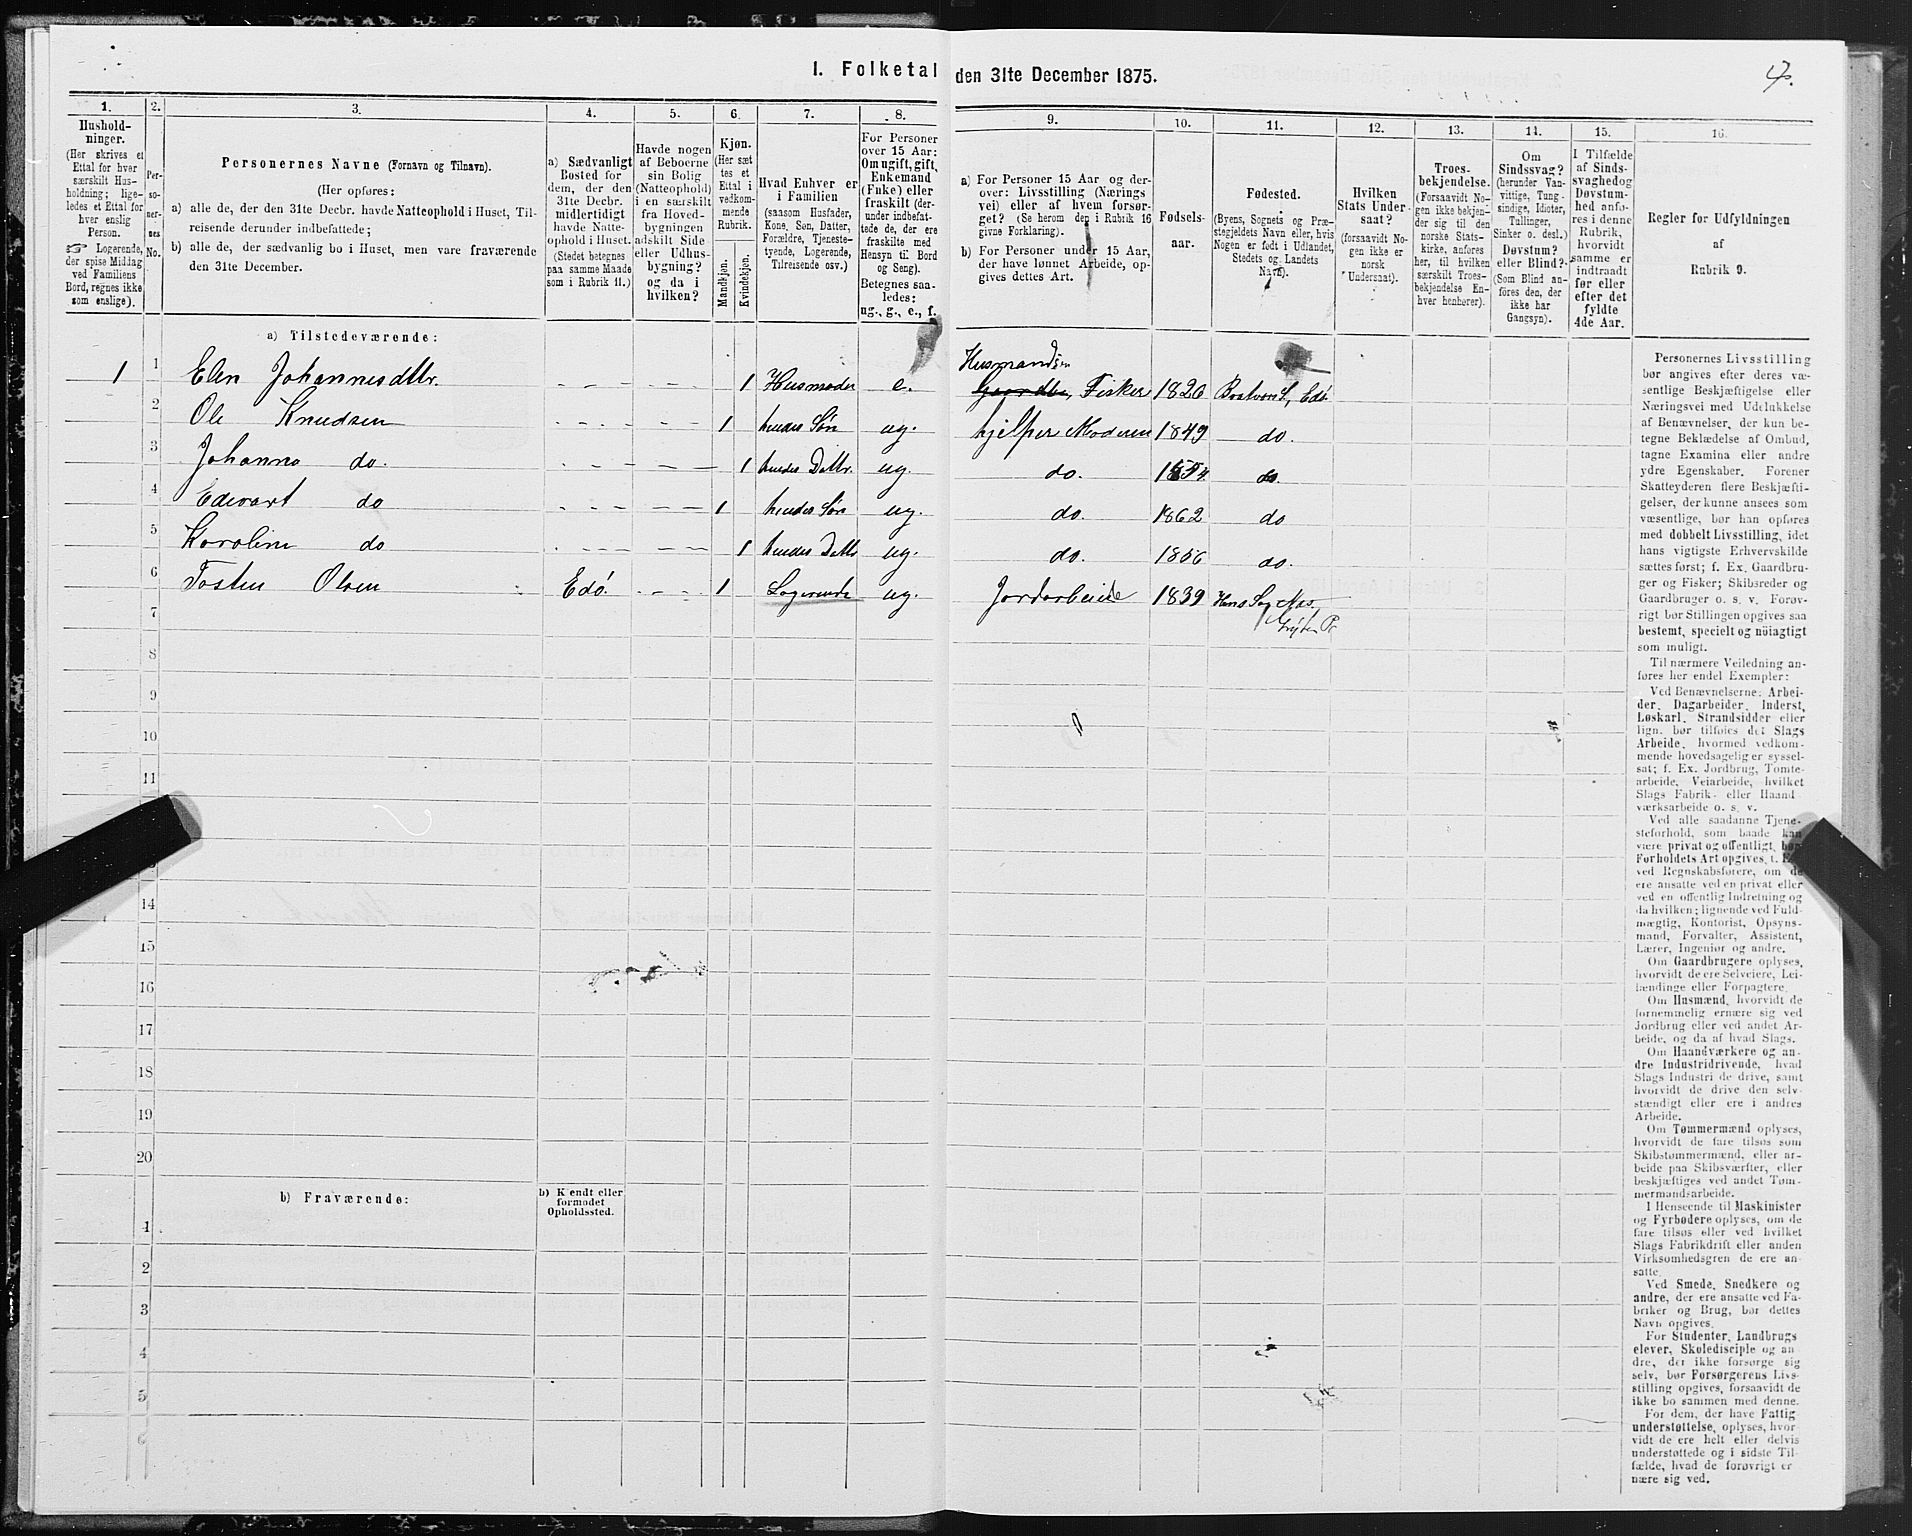 I. Folketal den 31te December 1875.
1.
Hushold-
ninger.
(Her skrives et
Ettal for hver
særskilt Hus-
holdning; lige-
ledes et Ettal for
hver enslig
Person.
☞ Logerende,
der spise Middag
ved Familiens
Bord, regnes ikke
som enslige).
2.
Per-
so-
ner-
nes
No.
3.
Personernes Navne (Fornavn og Tilnavn).
(Her opføres:
a) alle de, der den 31te Decbr. havde Natteophold i Huset, Til-
reisende derunder indbefattede;
b) alle de, der sædvanlig bo i Huset, men vare fraværende
den 31te December.
4.
a) Sædvanligt
Bosted for
dem, der den
31te Decbr.
midlertidigt
havde Natte-
ophold i Huset.
(Stedet betegnes
paa samme Maade
som i Rubrik 11.)
5.
Havde nogen
af Beboerne
sin Bolig
(Natteophold)
i en særskilt
fra Hoved-
bygningen
adskilt Side
eller Udhus-
bygning?
og da i
hvilken?
6.
Kjøn.
(Her sæt
tes et
Ettal i
vedkom-
mende
Rubrik.
Mandkjøn.
Kvindekjøn.
7.
Hvad Enhver er
i Familien
(saasom Husfader,
Kone, Søn, Datter,
Forældre, Tjeneste-
tyende, Logerende,
Tilreisende osv.)
8.
For Personer
over 15 Aar:
Om ugift, gift,
Enkemand
(Enke) eller
fraskilt (der-
under indbefat-
tede de, der ere
fraskilte med
Hensyn til Bord
og Seng).
Betegnes saa-
ledes:
ug., g., e., f.
9.
a) For Personer 15 Aar og der-
over: Livsstilling (Nærings
vei) eller af hvem forsør-
get? (Se herom den i Rubrik 16
givne Forklaring).
b) For Personer under 15 Aar,
der have lønnet Arbeide, op-
gives dettes Art.
10.
Fødsels-
aar.
11.
Fødested.
(Byens, Sognets og Præ-
stegjeldets Navn eller, hvis
Nogen er født i Udlandet,
Stedets og Landets
Navn).
12.
Hvilken
Stats Under-
saat?
(forsaavidt No-
gen ikke er
norsk
Undersaat).
13.
Troes-
bekjendelse.
(Forsaavidt No-
gen ikke bekjen-
der sig til den
norske Stats-
kirke, anføres
her, til hvilken
særskilt Troes-
bekjendelse En-
hver henhører).
14.
Om
Sindssvag?
(herunder Van-
vittige, Tung-
sindige, Idioter,
Tullinger,
Sinker o. desl.)
Døvstum?
eller Blind?
(Som Blind an-
føres den, der
ikke har
Gangsyn).
15.
I Tilfælde
af Sinds-
svaghed og
Døvstum-
hed anfø-
res i denne
Rubrik,
hvorvidt
samme er
indtraadt
før eller
efter det
fyldte
4de Aar.
16.
Regler for Udfyldningen
af
Rubrik 9.
a) Tilstedeværende:
Husmands
1 1 Elen Johannesdttr. 1 Husmoder e. Gaardbr, Fisker 1820 Bratvær S, Edø
2 Ole Knudsen 1 hendes Søn ug. hjelper Moderen 1849 do.
3 Johanna do. 1 hendes Dattr. ug. do. 1854 do.
4 Edevart do 1 hendes Søn ug. do. 1862 do
5 Karoline do 1 hendes Dattr ug. do. 1856 do.
6 Tosten Olsen Edø. 1 Logerende ug. Jordarbeide 1839
7
8
9
10
11
14
15
16
17
18
19
20
b) Fraværende:
b) Kjendt eller
formodet
Opholdssted.
1
2
3
4
5
6
Personernes Livsstilling
bør angives efter deres væ-
sentlige Beskjæftigelse eller
Næringsvei med Udelukkelse
af Benævnelser, der kun be-
tegne Beklædelse af Ombud,
tagne Examina eller andre
ydre Egenskaber. Forener
Skatteyderen flere Beskjæfti-
gelser, der kunne ansees som
væsentlige, bør han opføres
med dobbelt Livsstilling, idet
hans vigtigste Erhvervskilde
sættes først; f. Ex. Gaardbru-
ger og Fisker; Skibsreder og
Gaardbruger o. s. v. Forøv-
rigt bør Stillingen opgives saa
bestemt, specielt og nøiagtigt
som muligt.
Til nærmere Veiledning an-
føres her endel Exempler:
Ved Benævnelserne: Arbei-
der, Dagarbeider, Inderst,
Løskarl, Strandsidder eller
lign. bør tilføies det Slags
Arbeide, hvormed vedkom-
mende hovedsagelig er syssel-
sat; f. Ex. Jordbrug, Tomte-
arbeide, Veiarbeide, hvilket
Slags Fabrik- eller Haand-
værksarbeide o. s. v.
Ved alle saadanne Tjene-
steforhold, som baade kan
være privat og offentligt, bør
Forholdets Art opgives, f. Ex.
ved Regnskabsførere, om de
ere ansatte ved en privat eller
ved en offentlig Indretning og
da hvilken; lignende ved Fuld-
mægtig, Kontorist, Opsyns-
mand, Forvalter, Assistent,
Lærer, Ingeniør og andre.
Om Gaardbrugere oplyses,
hvorvidt de ere Selveiere, Lei-
lændinge eller Forpagtere.
Om Husmænd, hvorvidt de
fornemmelig ernære sig ved
Jordbrug eller ved andet Ar-
beide, og da af hvad Slags.
Om Haandværkere og an-
dre Industridrivende, hvad
Slags Industri de drive, samt
hvorvidt de drive den selv-
stændigt eller ere i andres
Arbeide.
Om Tømmermænd oplyses,
hvorvidt de fare tilsøs som
Skibstømmermænd, eller ar-
beide paa Skibsværfter, eller
beskjæftiges ved andet Tøm-
mermandsarbeide.
I Henseende til Maskinister
og Fyrbødere oplyses, om de
fare tilsøs eller ved hvilket
Slags Fabrikdrift eller anden
Virksomhedsgren de ere an-
satte.
Ved Smede, Snedkere og
andre, der ere ansatte ved Fa-
briker og Brug, bør dettes
Navn opgives.
For Studenter, Landbrugs
elever, Skoledisciple og an
dre, der ikke forsørge sig
selv, bør Forsørgerens Livs-
stilling opgives, forsaavidt de
ikke bo sammen med denne.
For dem, der have Fattig
understøttelse, oplyses, hvor-
vidt de ere helt eller delvis
understøttede og i sidste Til-
fælde, hvad de forøvrigt er
nære sig ved.